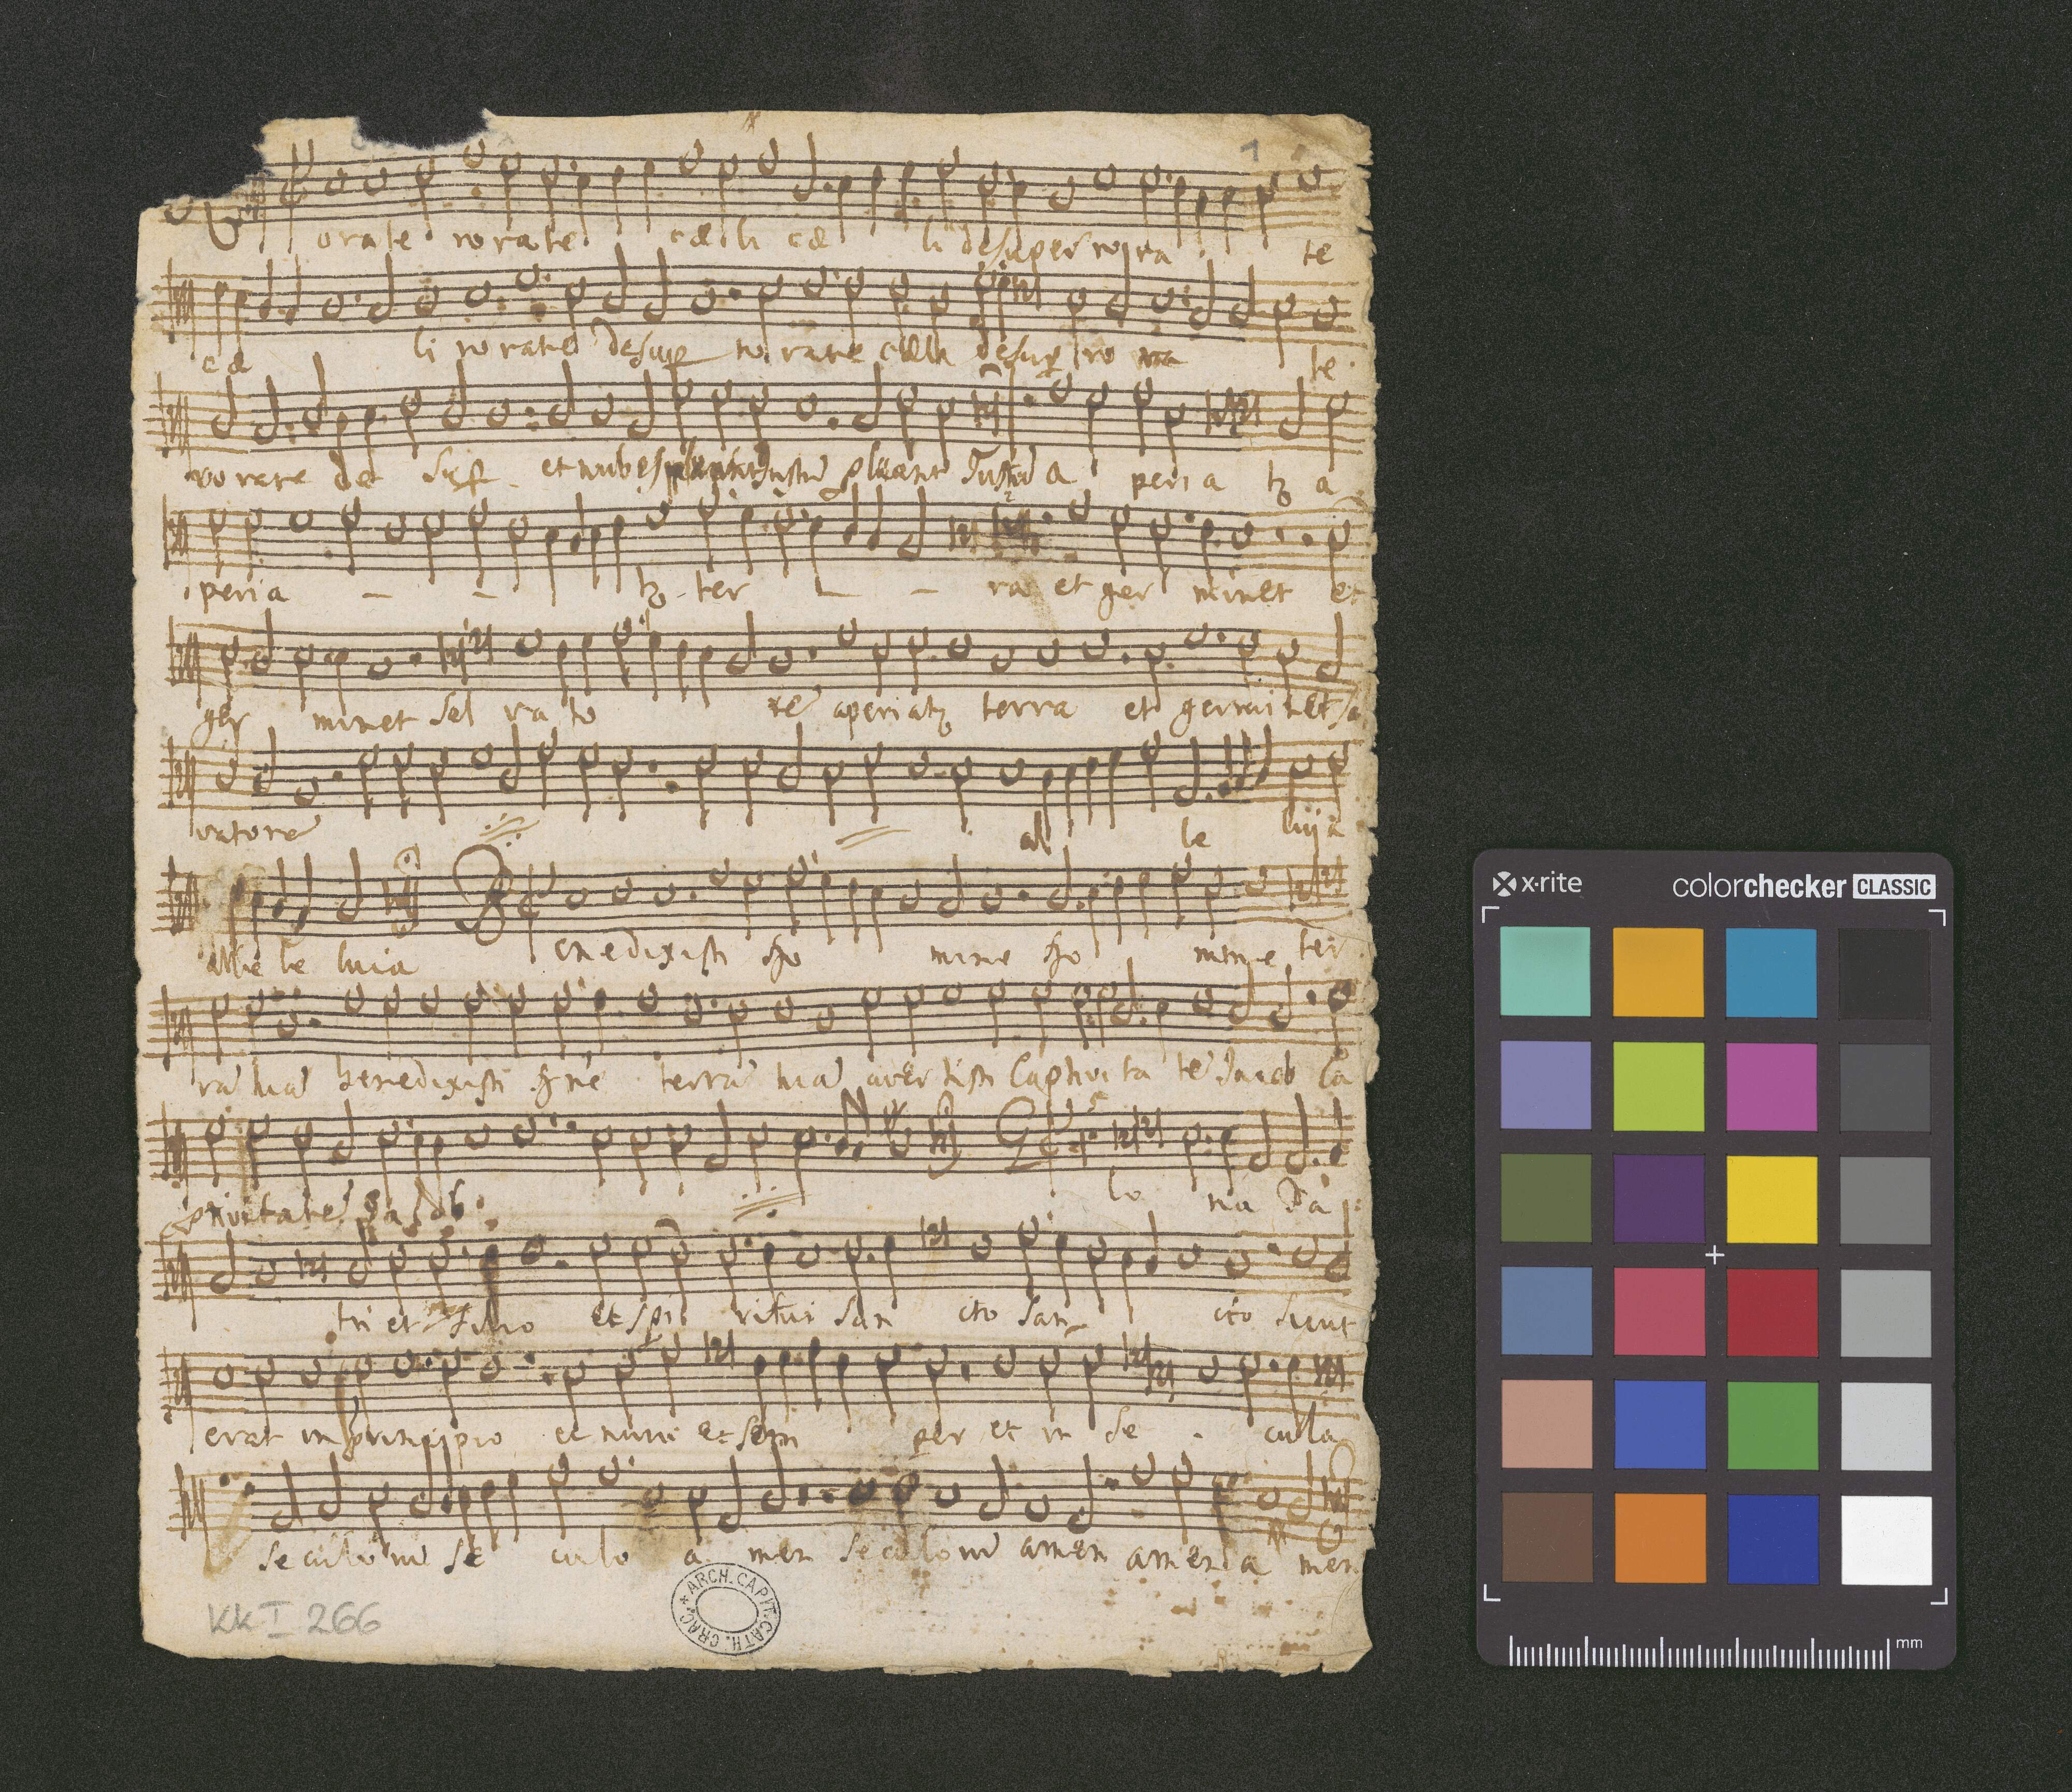 1
orate rorate cæli cæ li desuper ro ra te
cæ li rorate desup rorate cæli desup ro ra te
rorate de sup et nubes pluant Justu pluant Justu a peria tz a
peria tz ter ra et ger minet et
ger minet sal va to re aperiatz terra et germinet sa
vatore al le luja
alle le luia enedixisti Do mine Do mine ter
ra tua benedixisti Dne terra tua avertisti Captivita te Jacob Ca
ptivitate Jacob lo ria Pa
tri et Filio et Spi ritui San cto San cto sicut
erat in principio et nunc et sem per et in se cula
seculoru se culo a men seculoru amen amen a men
KK I 266
ARCH. CAPIT. CATH. CRAC.
x·rite colorchecker CLASSIC
mm